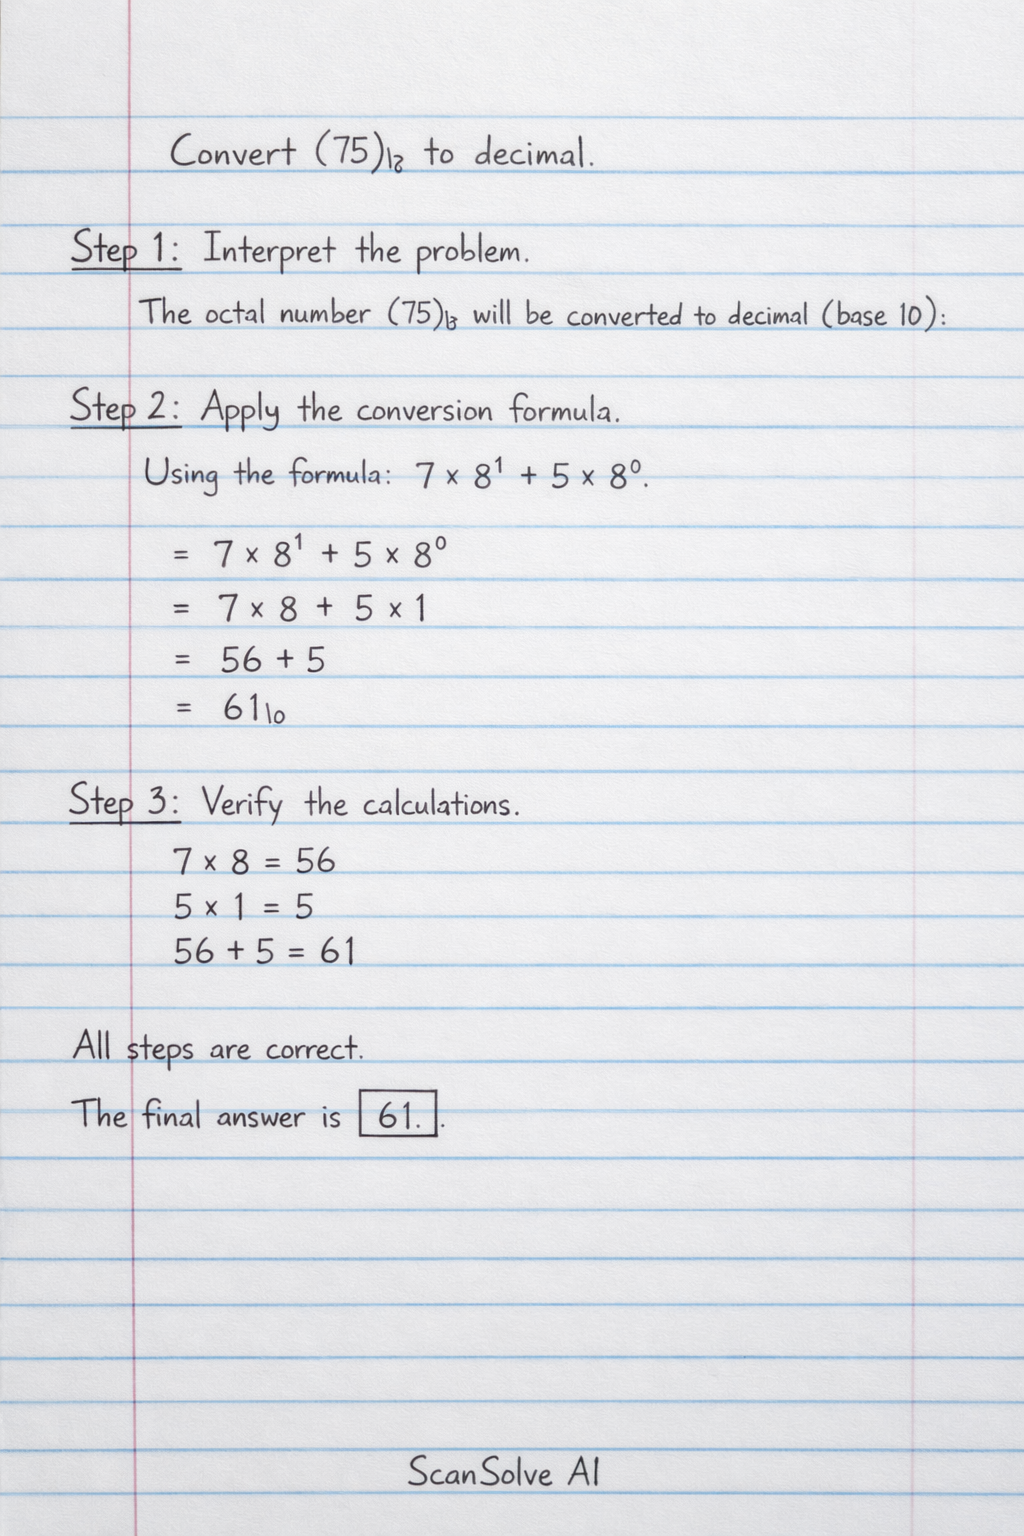 Convert (75)₁₈ to decimal.
Step 1: Interpret the problem.
The octal number (75) will be converted to decimal (base 10):
Step 2: Apply the conversion formula.
Using the formula: 7 × 8¹ + 5 × 8⁰.
= 7 × 8¹ + 5 × 8⁰
= 7 × 8 + 5 × 1
= 56 + 5
= 61₁₀
Step 3: Verify the calculations.
7 × 8 = 56
5 × 1 = 5
56 + 5 = 61
All steps are correct.
The final answer is 61..
ScanSolve AI